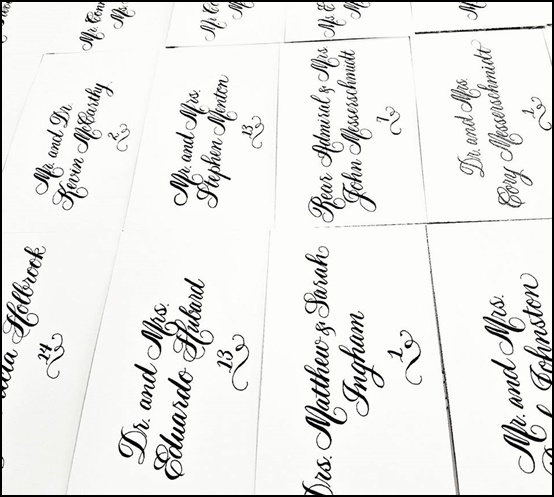 Mr. Conn
Mr. and Dr.
Kevin McCarthy
2
Mr. and Mrs.
Stephen Menton
13
Rear Admiral & Mrs
John Messerschmidt
1
Dr. and Mrs.
Cory Messerschmidt
1
Holbrook
24
Dr. and Mrs.
Eduardo Hubard
13
Drs. Matthew & Sarah
Ingham
1
Mr. and Mrs.
Johnston